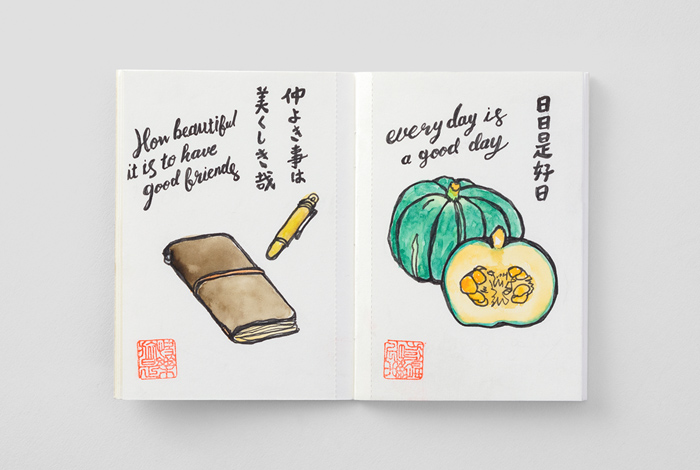 How beautiful
it is to have
good friends
仲よき事は
美くしき哉
every day is
a good day
日日是好日